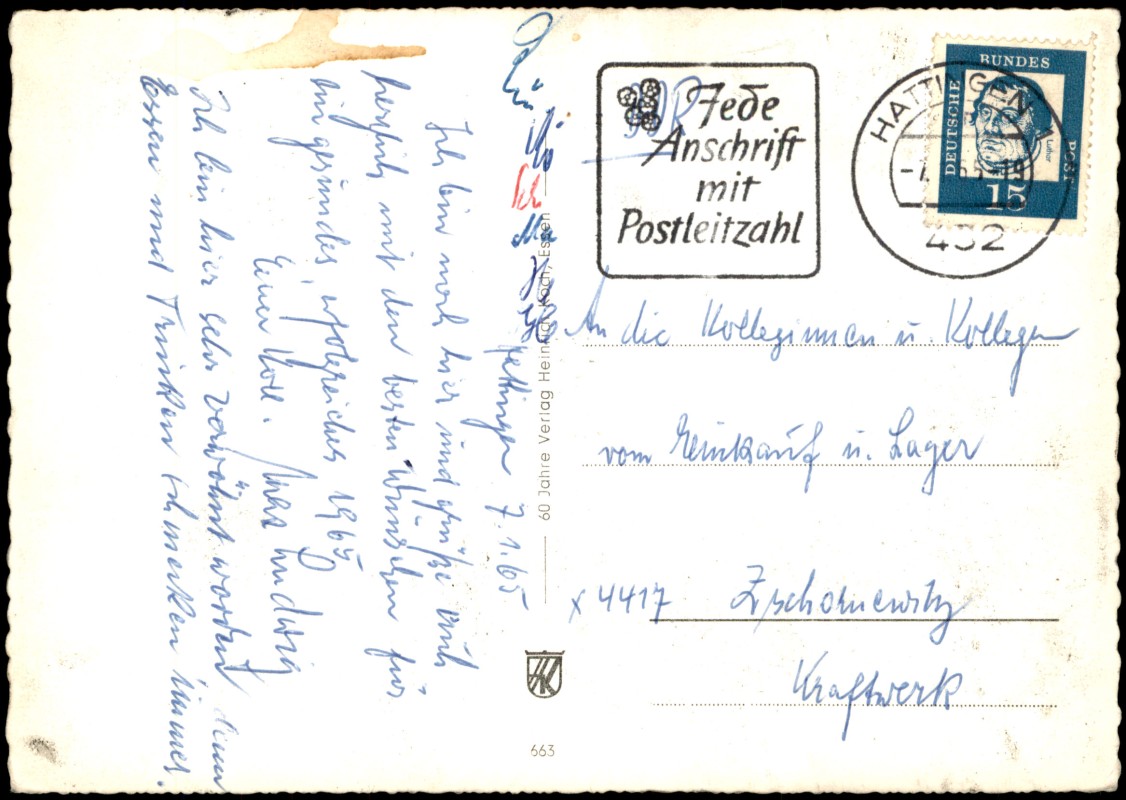 Hattingen 7.1.65
Ich bin noch hier und grüße Euch
herzlich mit den besten Wünschen für
ein gesundes, erfolgreiches 1965
Euer Koll. Max Ludwig
Ich bin hier sehr verwöhnt worden denn
Essen und Trinken schmecken immer.
60 Jahre Verlag Heinrich Koch, Essen
HK
663
Jede
Anschrift
mit
Postleitzahl
HATTINGEN
432
DEUTSCHE
BUNDES
POST
Luther
15
An die Kolleginnen u. Kollegen
vom Einkauf u. Lager
x 4417 Zschornewitz
Kraftwerk